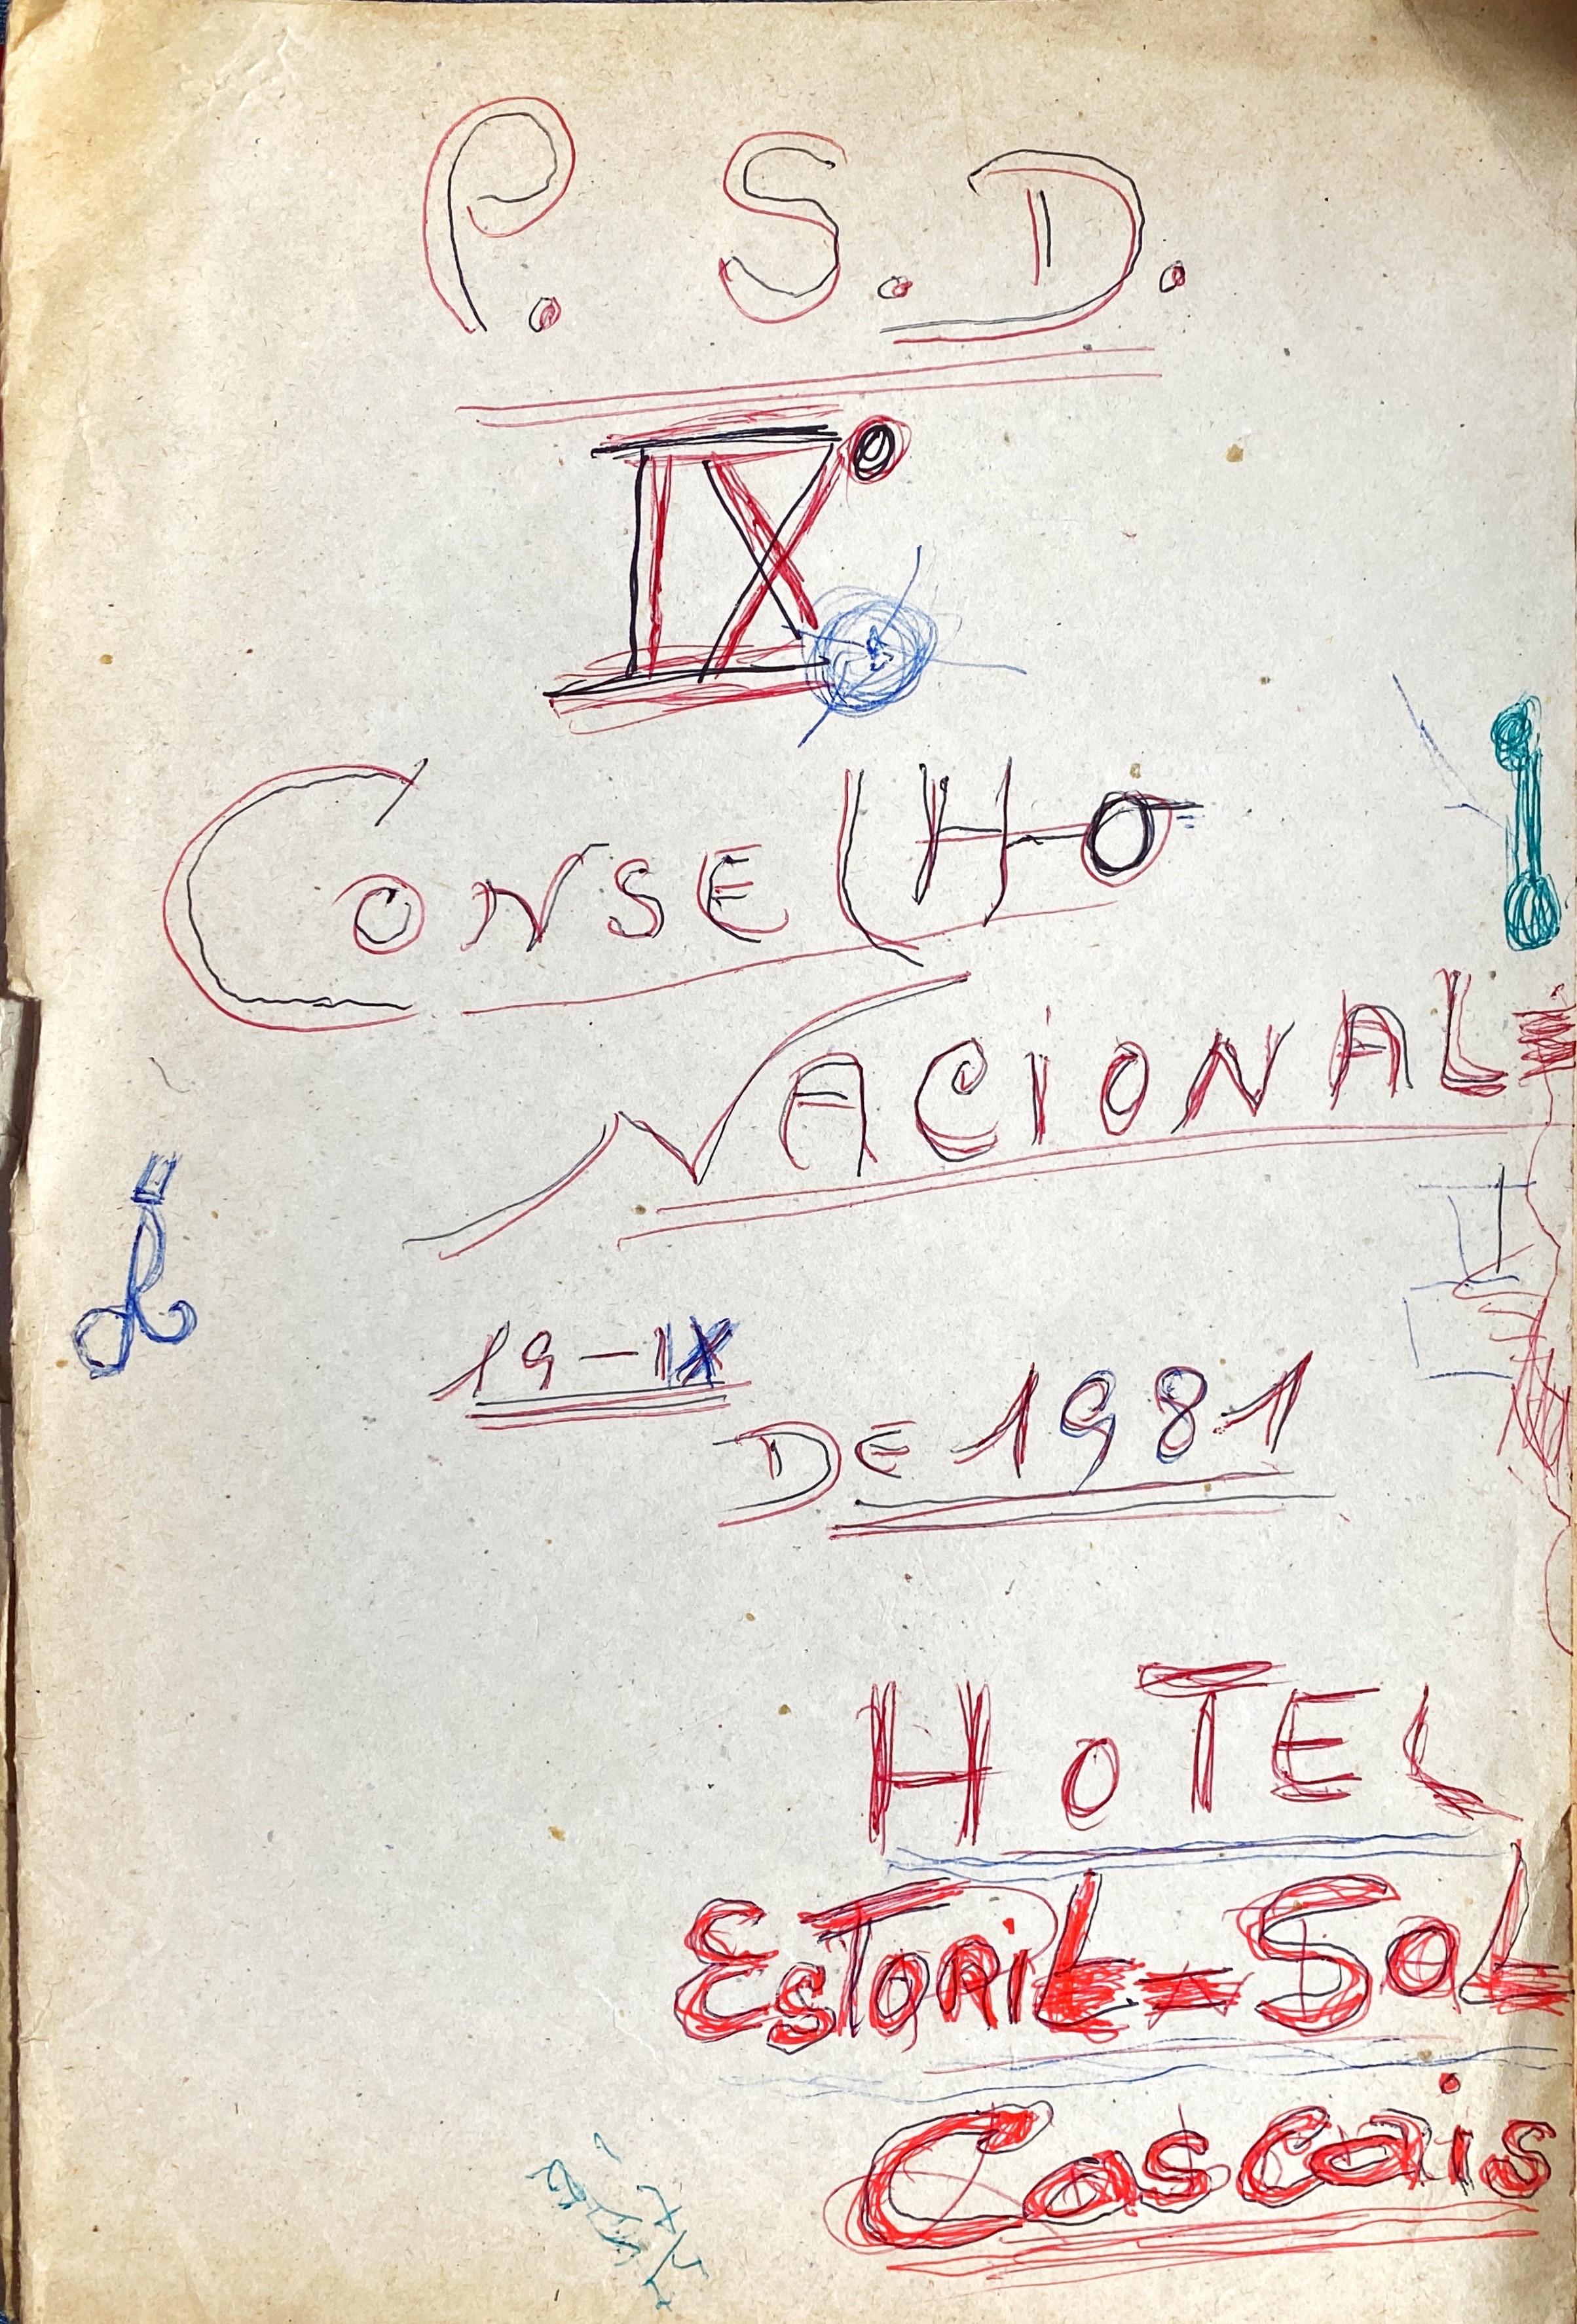 P. S. D.
IXº
CONSELHO
NACIONAL
19-IX
DE 1981
HOTEL
ESTORIL-SOL
Cascais